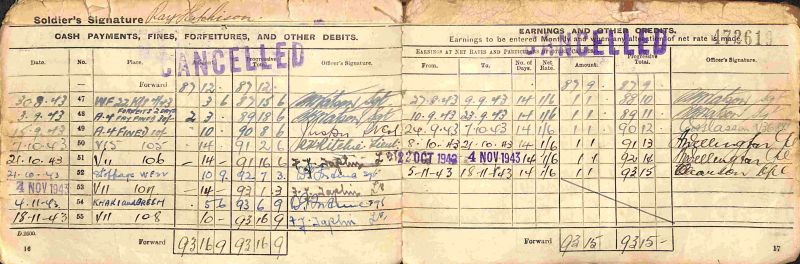 Soldier's Signature Ray Hutchison.
CASH PAYMENTS, FINES, FORFEITURES, AND OTHER DEBITS.
CANCELLED
Date. No. Place. Progressive Total. Officer's Signature.
Forward 87 12 - 87 12 -
30.8.43 47 3 6 87 15 6 Sgt
3.9.43 48 A-4 2 3 - 89 18 6 Sgt
15.9.43 49 A-4 FINED 10/- 10 - 90 8 6
7.10.43 50 V15 105 - 14 - 91 2 6 Ritchie Lieut
21.10.43 51 V11 106 - 14 - 91 16 6 F.J. Taplin Lt
21.10.43 52 10 9 92 7 3
4 NOV 1943 53 V11 107 - 14 - 93 1 3 F.J. Taplin Lt
4.11.43 54 KHAKI 5 6 93 6 9
18-11-43 55 V11 108 10 - 93 16 9 F.J. Taplin Lt
D.2600. Forward 93 16 9 93 16 9
16
EARNINGS AND OTHER CREDITS.
Earnings to be entered Monthly and when alteration of net rate is made.
CANCELLED
172619
EARNINGS AT NET RATES AND PARTICULARS OF OTHER CREDITS.
From. To. No. of Days. Net Rate. Amount. Progressive Total. Officer's Signature.
Forward 87 9 - 87 9
27-8-43 9.9.43 14 1/6 1 1 88 10
10.9.43 23.9.43 14 1/6 1 1 89 11
24-9-43 7-10.43 14 1/6 1 1 90 12
8-10-43 21-10-43 14 1/6 1 1 91 13 Wellington
22 OCT 1943 4 NOV 1943 14 1/6 1 1 92 14 Wellington
5-11-43 18-11-43 14 1/6 1 1 93 15
Forward 93 15 93 15 -
17